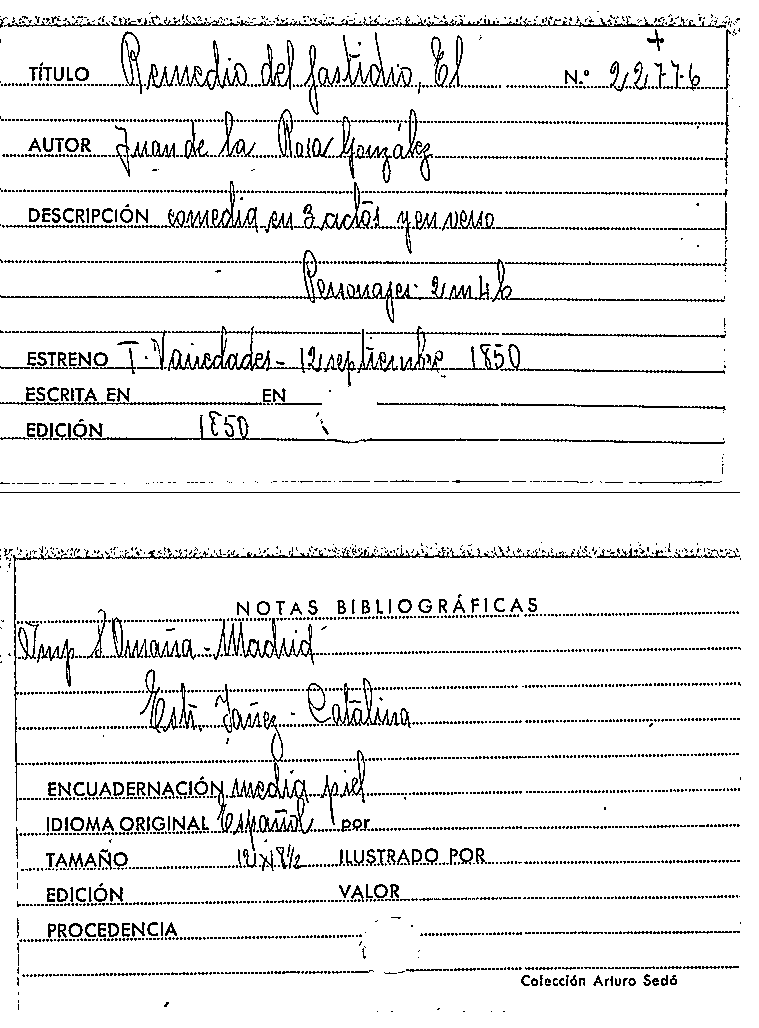 TÍTULO Remedio del fastidio, El N.º 22776
AUTOR Juan de la Rosa González
DESCRIPCIÓN comedia en 3 actos y en verso
Personajes: 2 m 4 h
ESTRENO T. Variedades - 12 septiembre 1850
ESCRITA EN EN
EDICIÓN 1850
NOTAS BIBLIOGRÁFICAS
Imp S Omaña - Madrid
Estr. Yañez - Catalina
ENCUADERNACIÓN media piel
IDIOMA ORIGINAL Español por
TAMAÑO ILUSTRADO POR
EDICIÓN VALOR
PROCEDENCIA
Colección Arturo Sedó